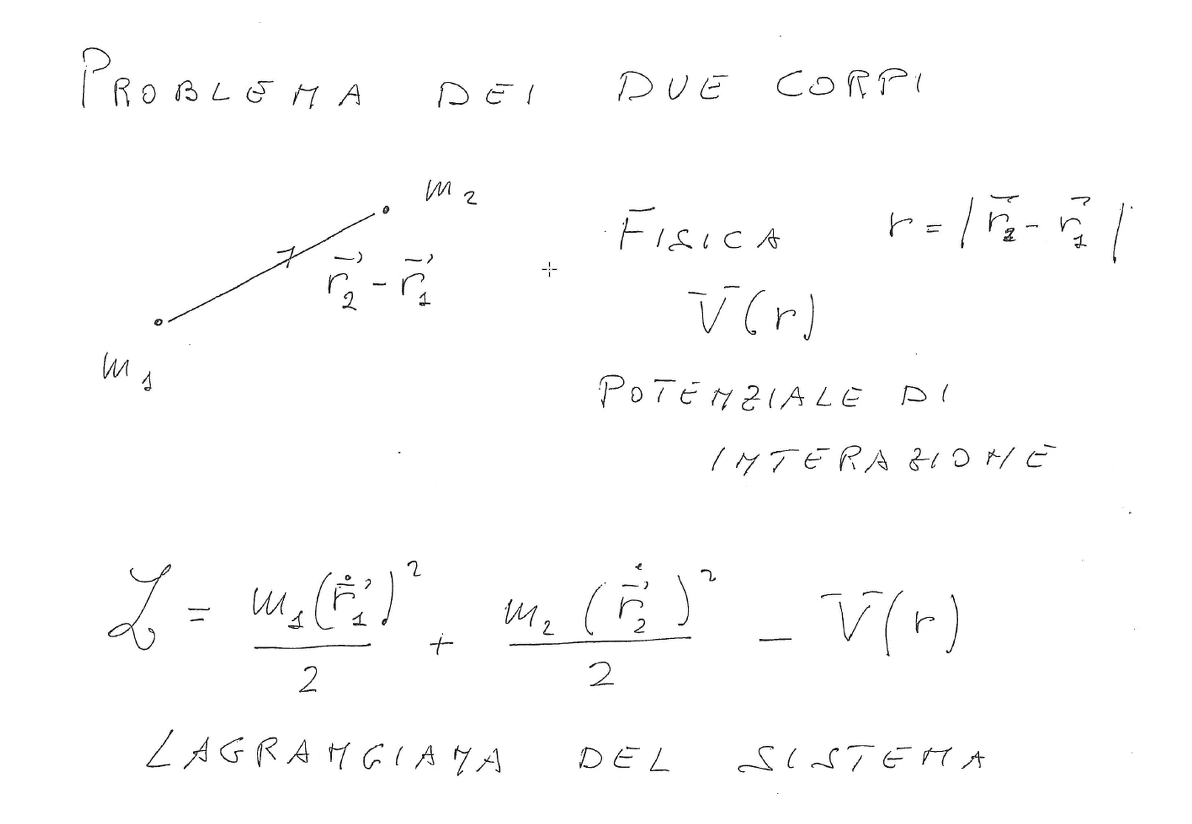 PROBLEMA DEI DUE CORPI
m₂
FISICA r = |r⃗₂ - r⃗₁|
r⃗₂ - r⃗₁
+
V(r)
m₁
POTENZIALE DI
INTERAZIONE
ℒ = m₁(ṙ⃗₁)²/2 + m₂(ṙ⃗₂)²/2 - V(r)
LAGRANGIANA DEL SISTEMA